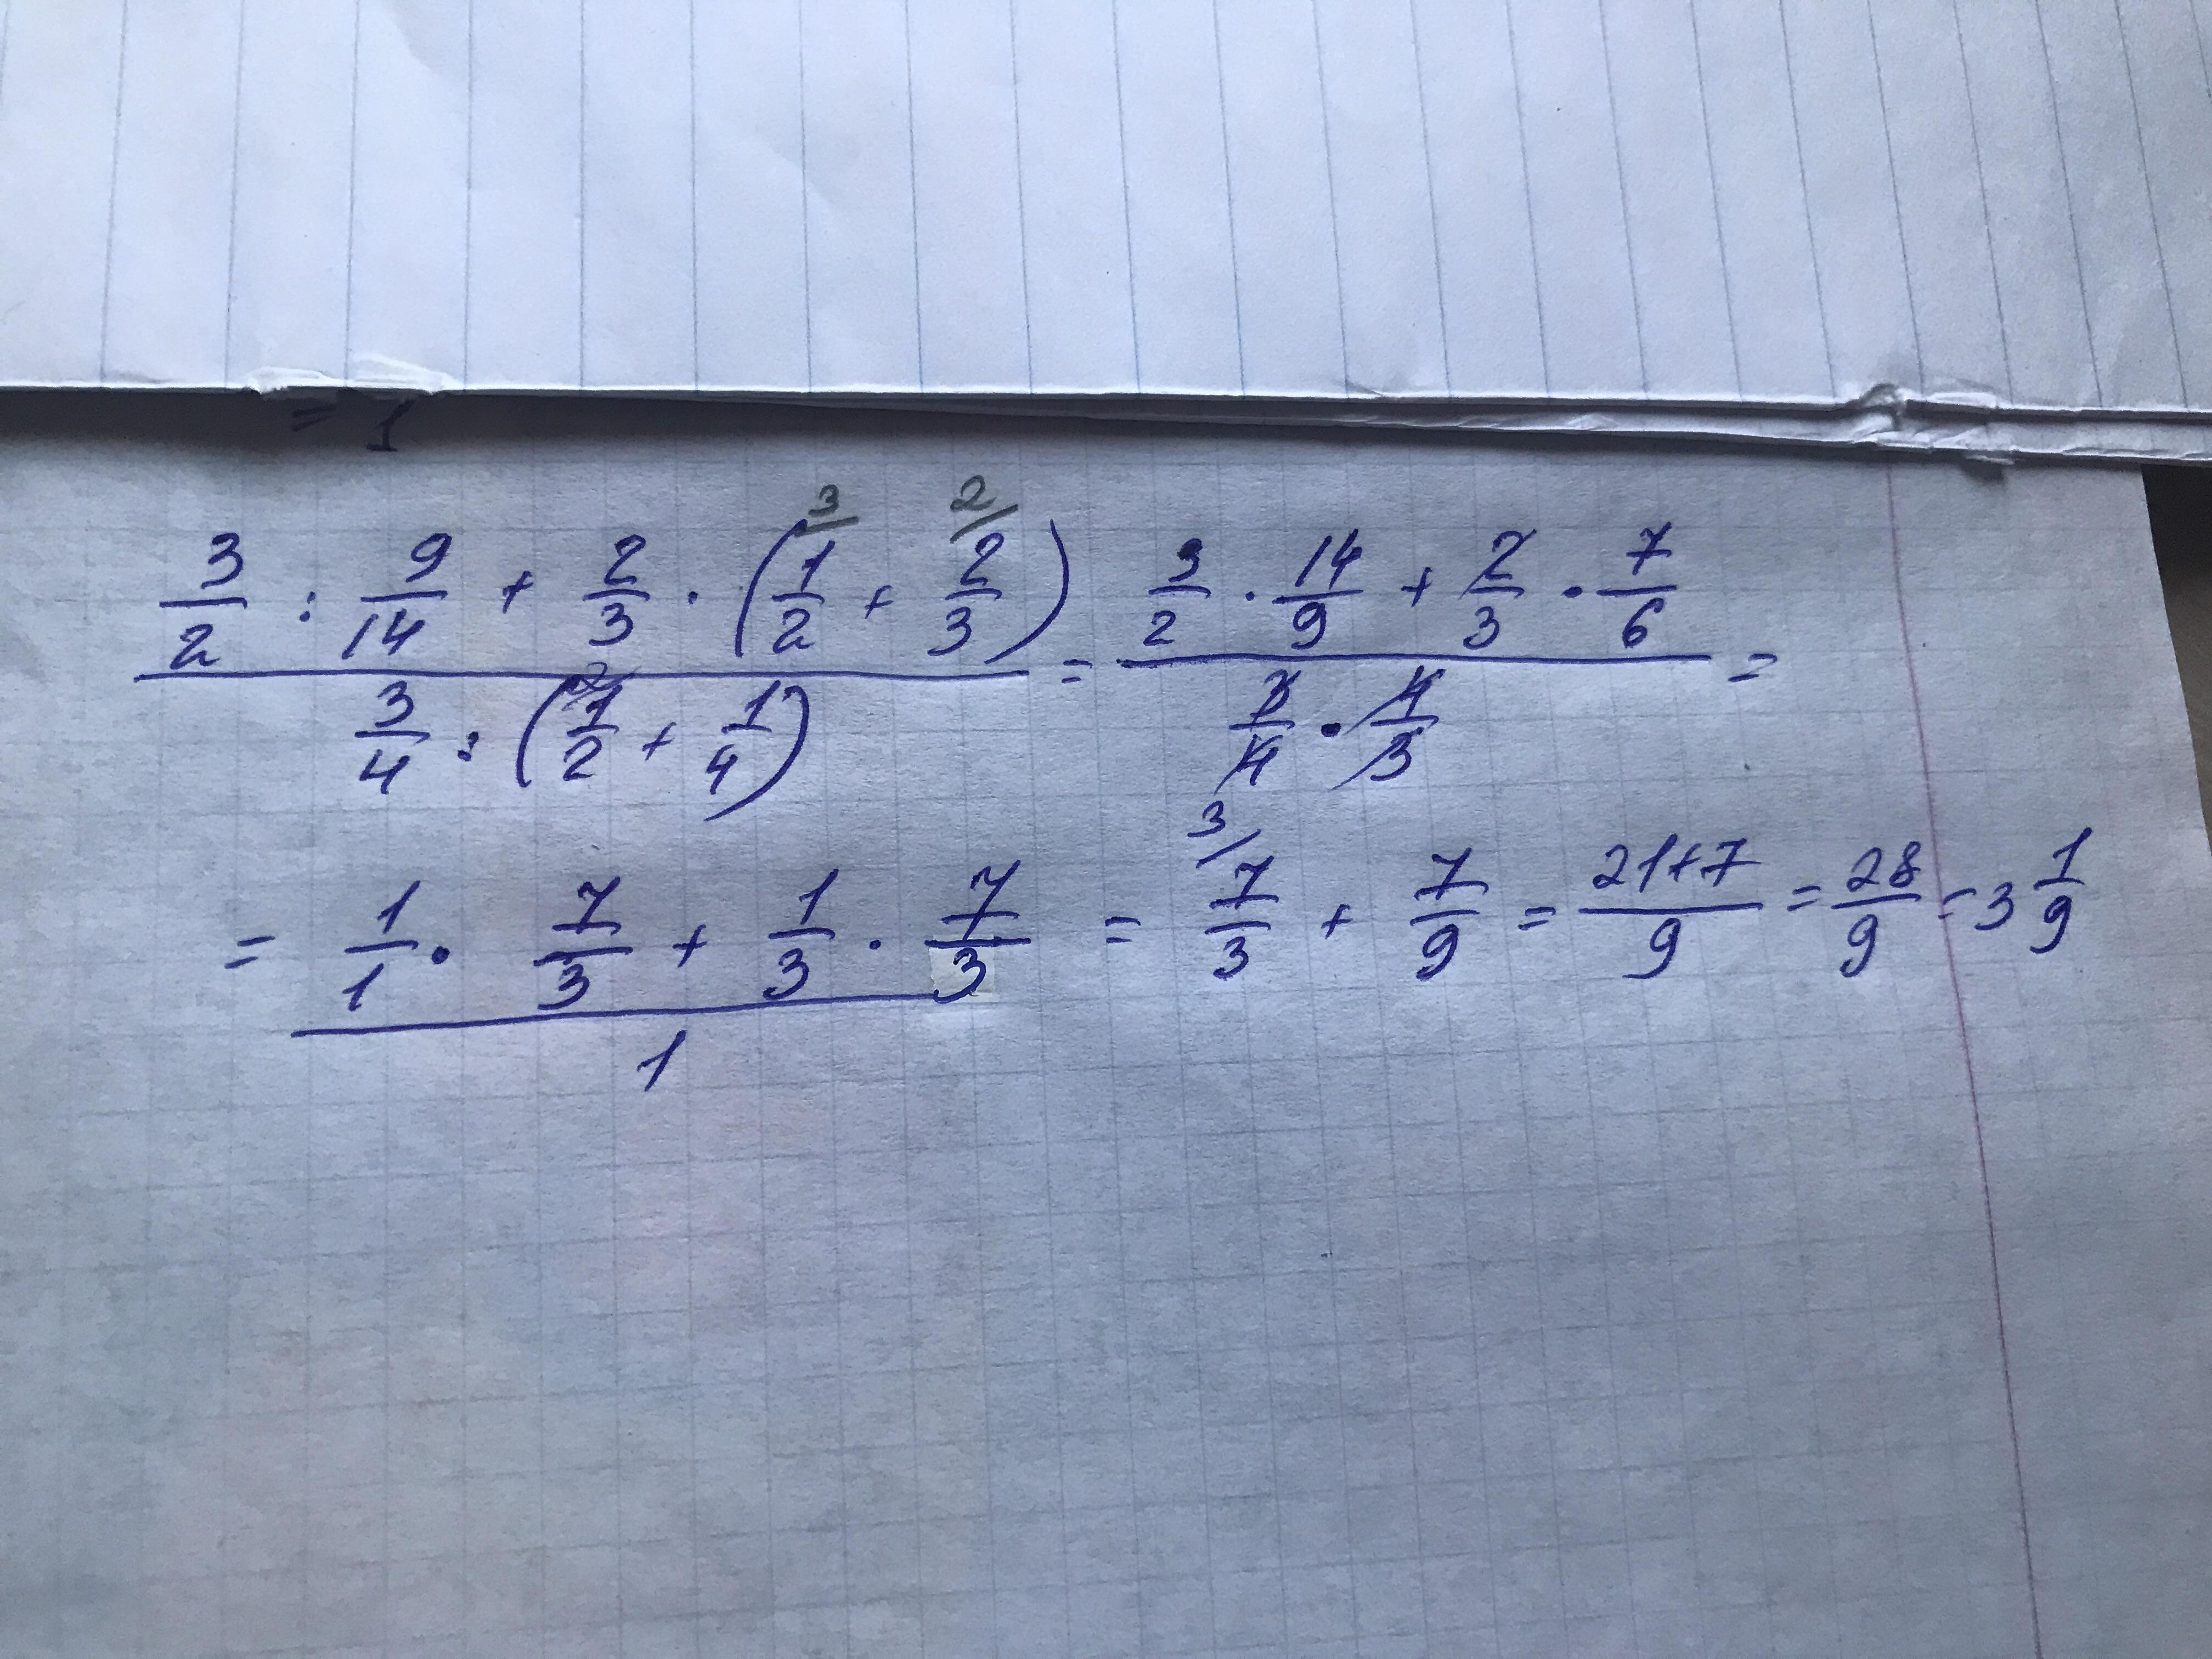 = 1
(3/2 : 9/14 + 2/3 · (1/2 + 2/3)) / (3/4 : (1/2 + 1/4)) = (3/2 · 14/9 + 2/3 · 7/6) / (3/4 · 4/3) =
= (1/1 · 7/3 + 1/3 · 7/3) / 1 = 7/3 + 7/9 = (21+7)/9 = 28/9 = 3 1/9